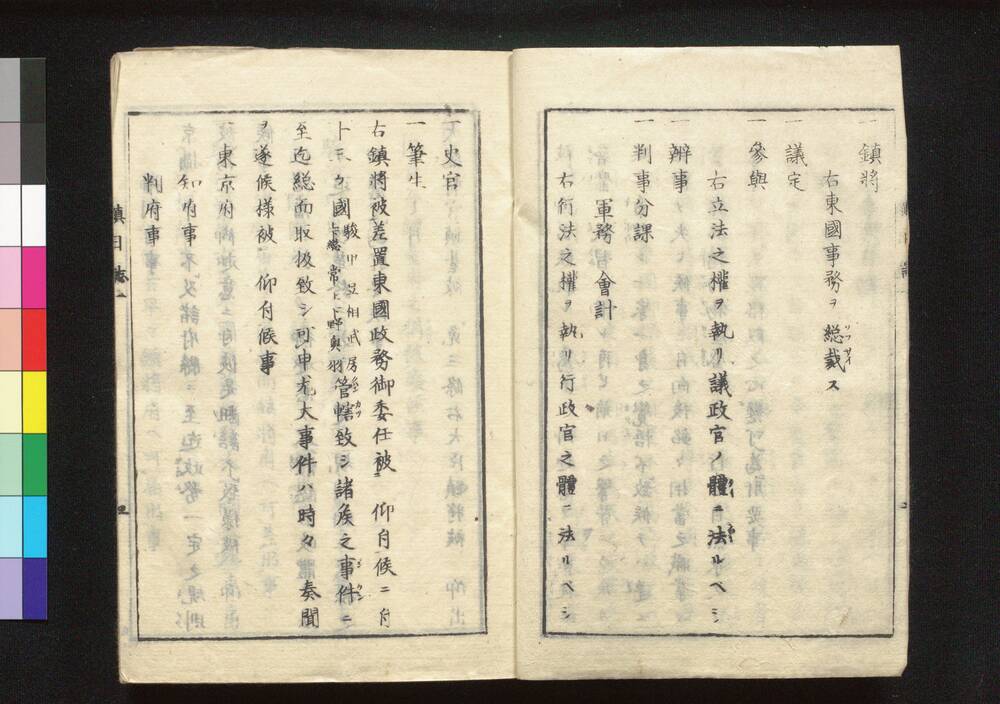 一 鎮將
右東國事務ヲ總裁ス
一 議定
一 參與
右立法之權ヲ執リ議政官ノ體ニ法ルベシ
一 辨事
一 判事分課
軍務 會計
右行法之權ヲ執リ行政官之體ニ法ルベシ
一 史官
一 筆生
右鎮將被差置東國政務御委任被 仰付候ニ付
十三ヶ國 駿 甲 豆 相 武 房 上總 下總 常 上下野 奥 羽 管轄致シ諸侯之事件ニ
至迄総而取扱致シ可申尤大事件ハ時々奏聞
ヲ遂候様被 仰付候事
一 東京府
知府事
判府事